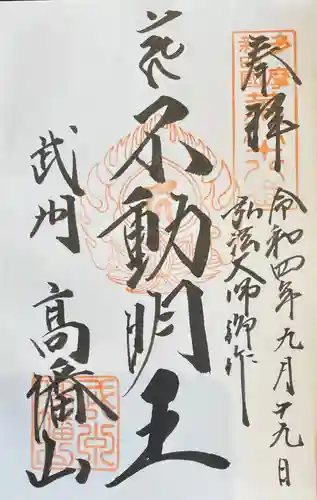 奉拝
令和四年九月十九日
弘法大師御作
不動明王
武州
高幡山